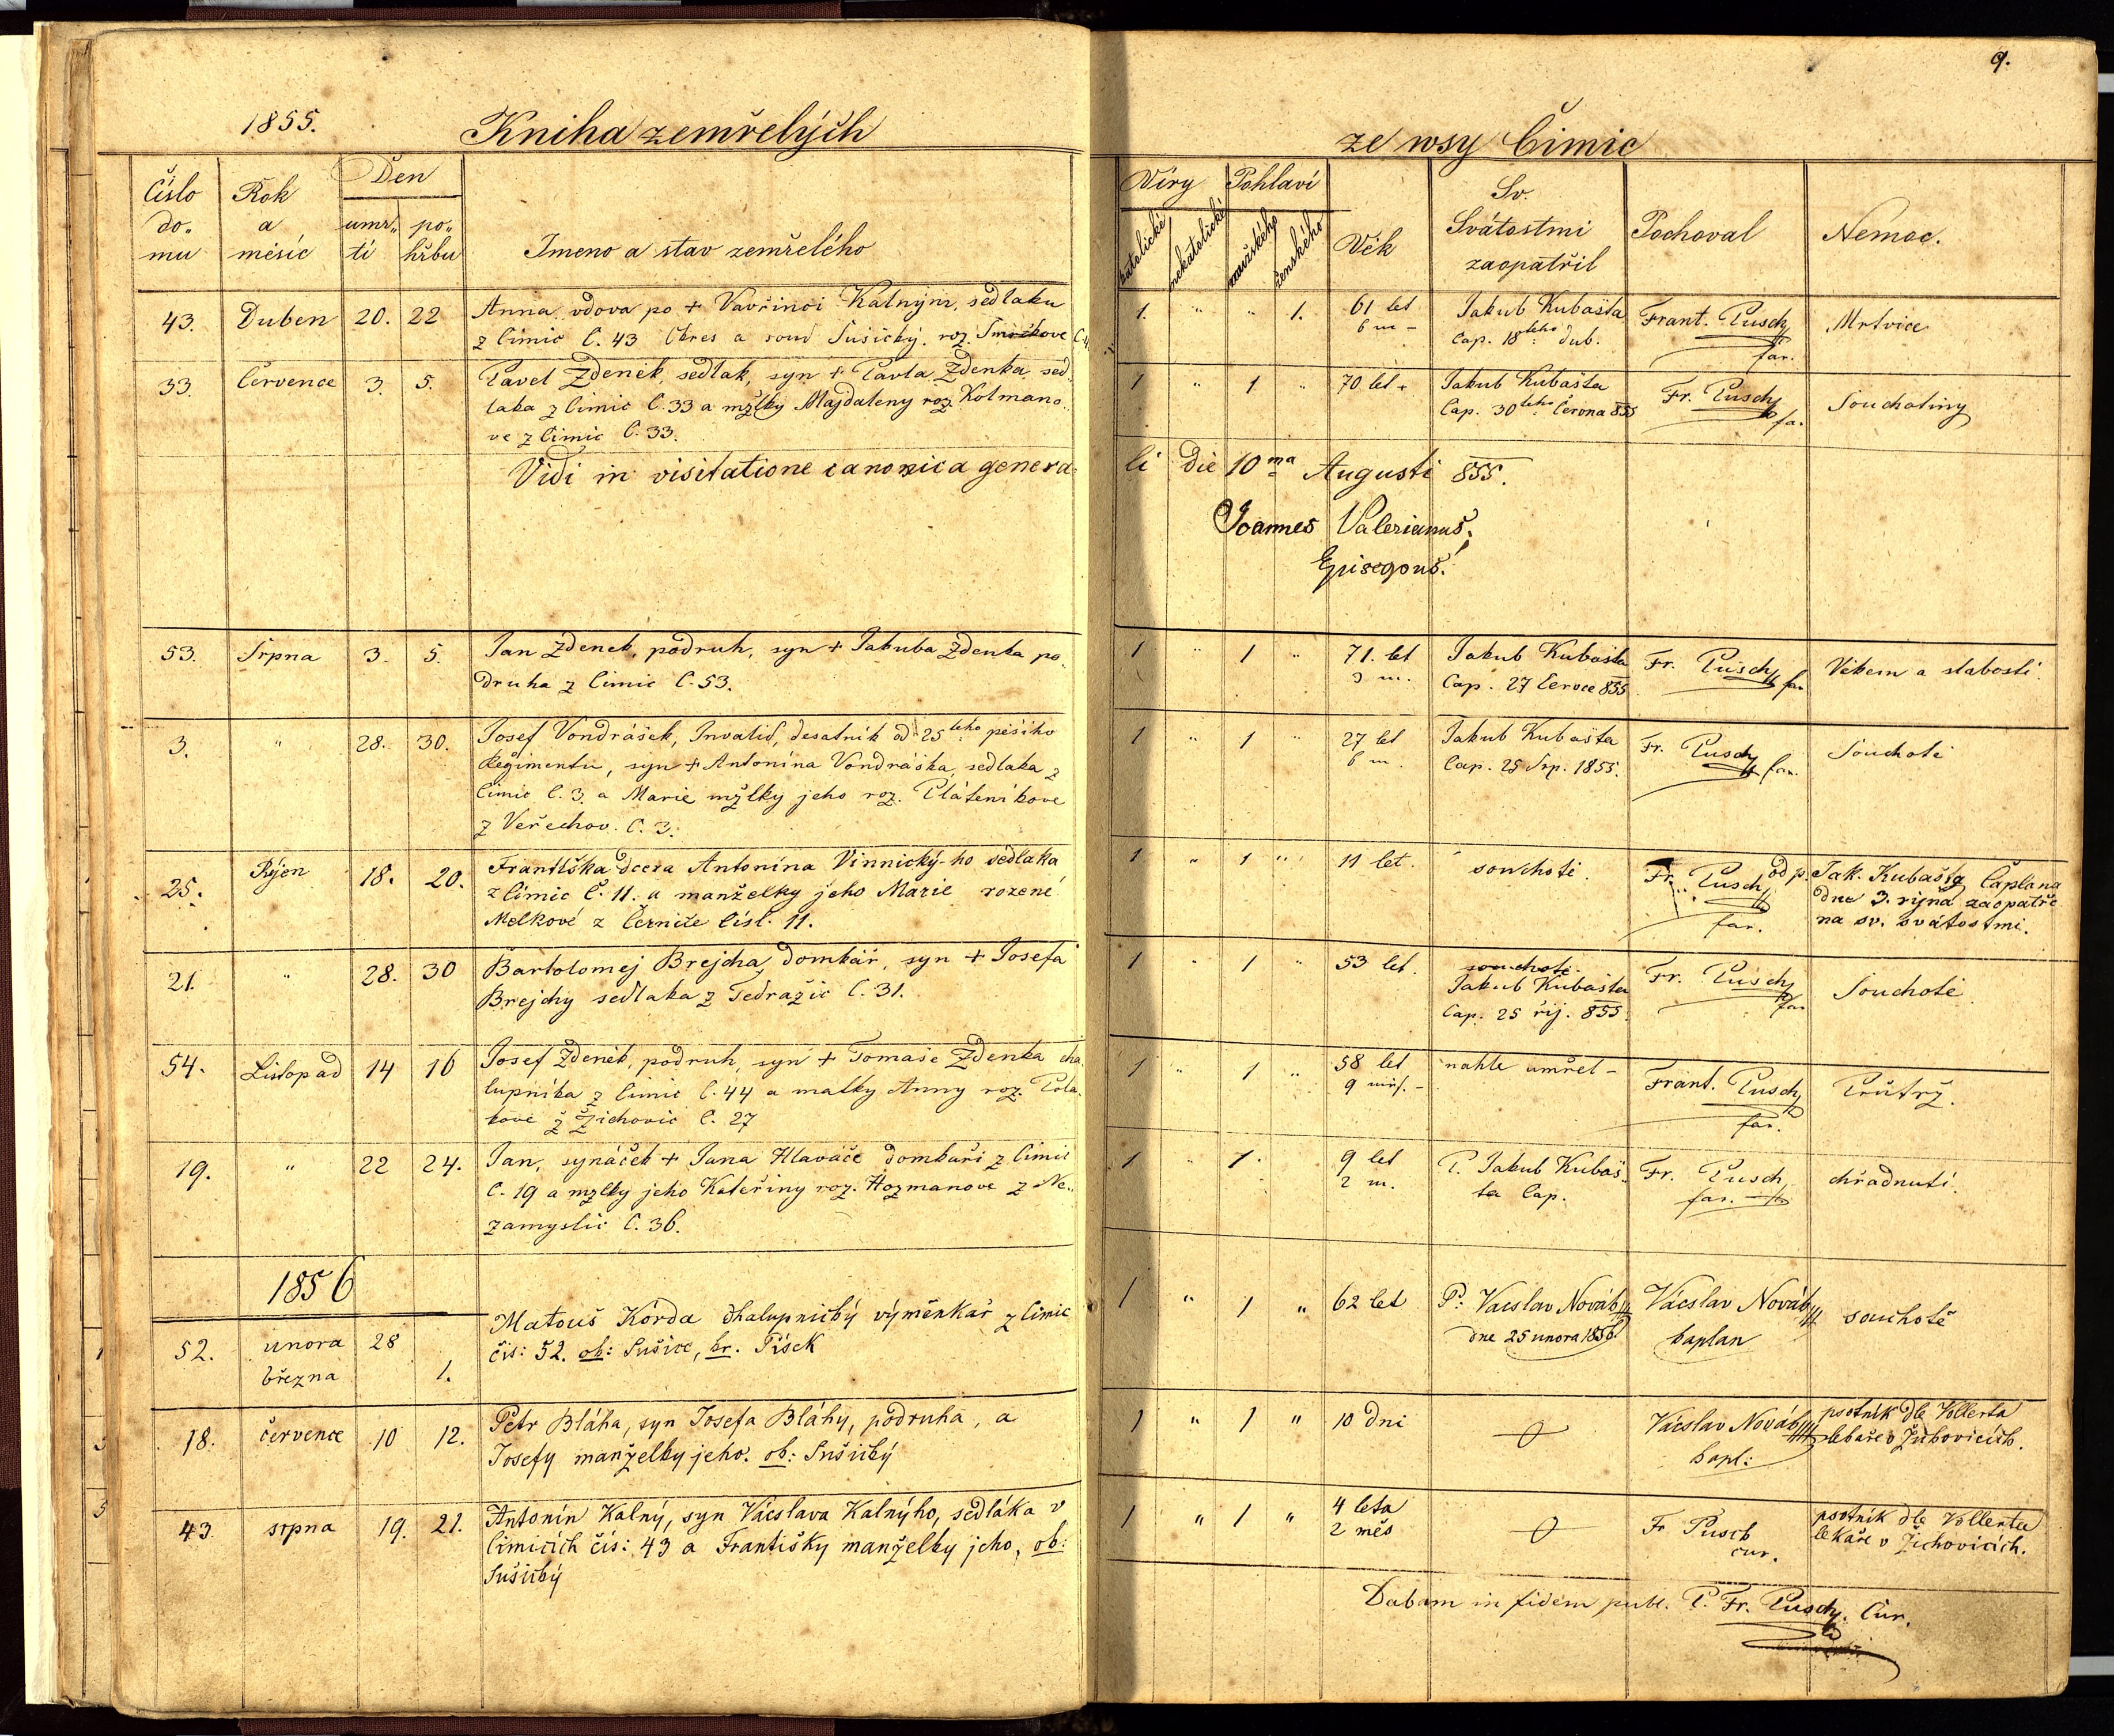 9.
1855.
Kniha zemřelých
ze wsy Čimic
Číslo do„ mu
Rok a měsíc
Den
umř„ tí
po„ hřbu
Jmeno a stav zemřelého
Víry
katolické
nekatolické
Pohlaví
mužského
ženského
Věk
Sv. Svátostmi zaopatřil
Pochoval
Nemoc.
43. Duben 20. 22 Anna vdova po + Vavřinci Kalným, sedlaku
z Čimic č. 43 Okres a soud Sušický. roz. Smrčkove
1. " " 1. 61 let 6 m –
Jakub Kubašta
Cap. 18teho dub.
Frant. Pusch
far.
Mrtvice
33. Července 3. 5. Pavel Zdeněk, sedlak, syn + Pavla Zdenka sed„
laka z Čimic č. 33 a mžlky Majdaleny roz. Kolmano„
ve z Čimic č. 33.
1 " 1 " 70 let
Jakub Kubašta
Cap. 30teho Června 855
Fr. Pusch
fa.
Souchotiny
Vidi in visitatione canonica genera„
li die 10ma Augusti 855.
Joannes Valerianus.
Episcopus.
53. Srpna 3. 5. Jan Zdenek, podruh, syn + Jakuba Zdenka po„
druha z Čimic č. 53.
1 " 1 " 71. let 3 m.
Jakub Kubašta
Cap. 27 Červce 855
Fr. Pusch far
Věkem a slabosti.
3. " 28. 30. Josef Vondrášek, Invalid, desatnik od 25teho pěšiho
Regimentu, syn + Antonína Vondráška, sedlaka z
Čimic č. 3. a Marie mžlky jeho roz. Plátenikove
z Veřechov. č. 3.
1 " 1 " 27 let 6 m.
Jakub Kubašta
Cap. 25 Srp. 1855.
Fr. Pusch far.
Souchotě
25. Říjen 18. 20. Františka dcera Antonína Vinnický-ho sedlaka
z Čimic č. 11. a manželky jeho Marie rozené
Melkové z Černiče čísl. 11.
1 " 1 " 11 let.
souchotě.
Fr. Pusch
far.
od p. Jak. Kubašta Čaplana
dne 3. ryjna zaopatře
na sv. svátostmi.
21. " 28. 30 Bartolomej Brejcha, domkář, syn + Josefa
Brejchy sedlaka z Tedražic č. 31.
1 " 1 " 53 let.
souchotě.
Jakub Kubašta
Cap. 25 říj. 855.
Fr. Pusch
far
Souchotě
54. Listopad 14 16 Josef Zdeněk, podruh, syn + Tomaše Zdenka cha„
lupnika z Čimic č. 44 a matky Anny roz. Pola„
kove z Žichovic č. 27
1 " 1 " 58 let 9 měs. –
nahle umřel –
Frant. Pusch
far.
Průtrž.
19. " 22 24. Jan, synáček + Jana Hlaváče domkaři z Čimic
č. 19 a mžlky jeho Kateřiny roz. Hozmanove z Ne„
zamyslic č. 36.
1 " 1. 9 let 2 m.
P. Jakub Kubaš„
ta Cap.
Fr. Pusch
far.
chřadnutí.
1856
52. unora 28
března 1.
Matouš Korda chalupnický výměnkář z Čimic
čís: 52. ob: Sušice, kr. Písek
1 " 1 " 62 let
P: Vácslav Novák
dne 25 unora 1856.
Vácslav Novák
kaplan
souchotě
18. července 10 12. Petr Bláha, syn Josefa Bláhy, podruha, a
Josefy manželky jeho. ob: Sušický
1 " 1 " 10 dní
Vácslav Novák
kapl:
psotník dle Vollerta
lekaře v Žichovicích.
43. srpna 19. 21. Antonín Kalný, syn Vácslava Kalnýho, sedláka v
Čimicích čís: 43 a Františky manželky jeho, ob:
Sušický
1 " 1 " 4 leta 2 měs
Fr Pusch
cur.
psotník dle Vollerta
lekaře v Žichovicích.
Dabam in fidem publ. P. Fr. Pusch. Cur.